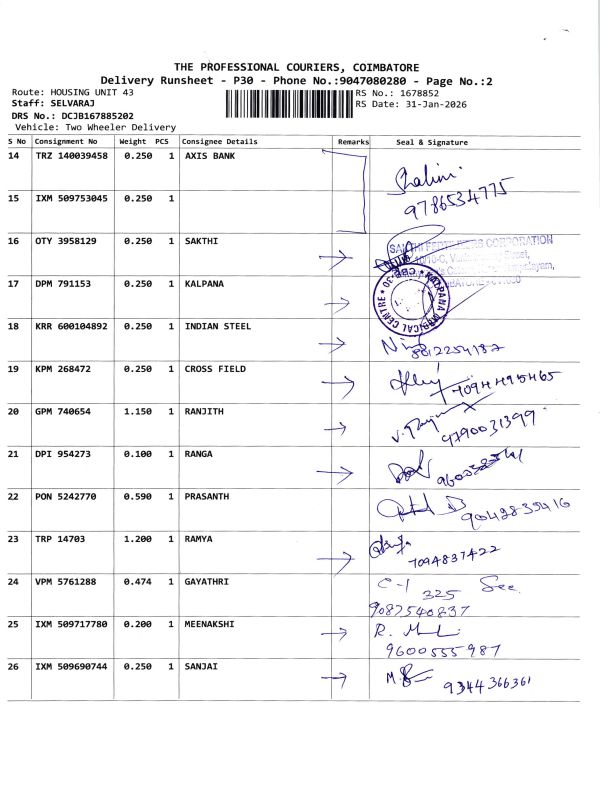 THE PROFESSIONAL COURIERS, COIMBATORE
Delivery Runsheet - P30 - Phone No.:9047080280 - Page No.:2
Route: HOUSING UNIT 43
RS No.: 1678852
Staff: SELVARAJ
RS Date: 31-Jan-2026
DRS No.: DCJB167885202
Vehicle: Two Wheeler Delivery
S No Consignment No Weight PCS Consignee Details Remarks Seal & Signature
14 TRZ 140039458 0.250 1 AXIS BANK
Shalini
9786534775
15 IXM 509753045 0.250 1
16 OTY 3958129 0.250 1 SAKTHI
FERTILISERS CORPORATION
17 DPM 791153 0.250 1 KALPANA
KALPANA MEDICAL CENTRE
18 KRR 600104892 0.250 1 INDIAN STEEL
8012254187
19 KPM 268472 0.250 1 CROSS FIELD
7094495465
20 GPM 740654 1.150 1 RANJITH
9790031399
21 DPI 954273 0.100 1 RANGA
22 PON 5242770 0.590 1 PRASANTH
9042835416
23 TRP 14703 1.200 1 RAMYA
7094837422
24 VPM 5761288 0.474 1 GAYATHRI
C-1 325 Sec
9087540837
25 IXM 509717780 0.200 1 MEENAKSHI
R.
9600555987
26 IXM 509690744 0.250 1 SANJAI
9344366361